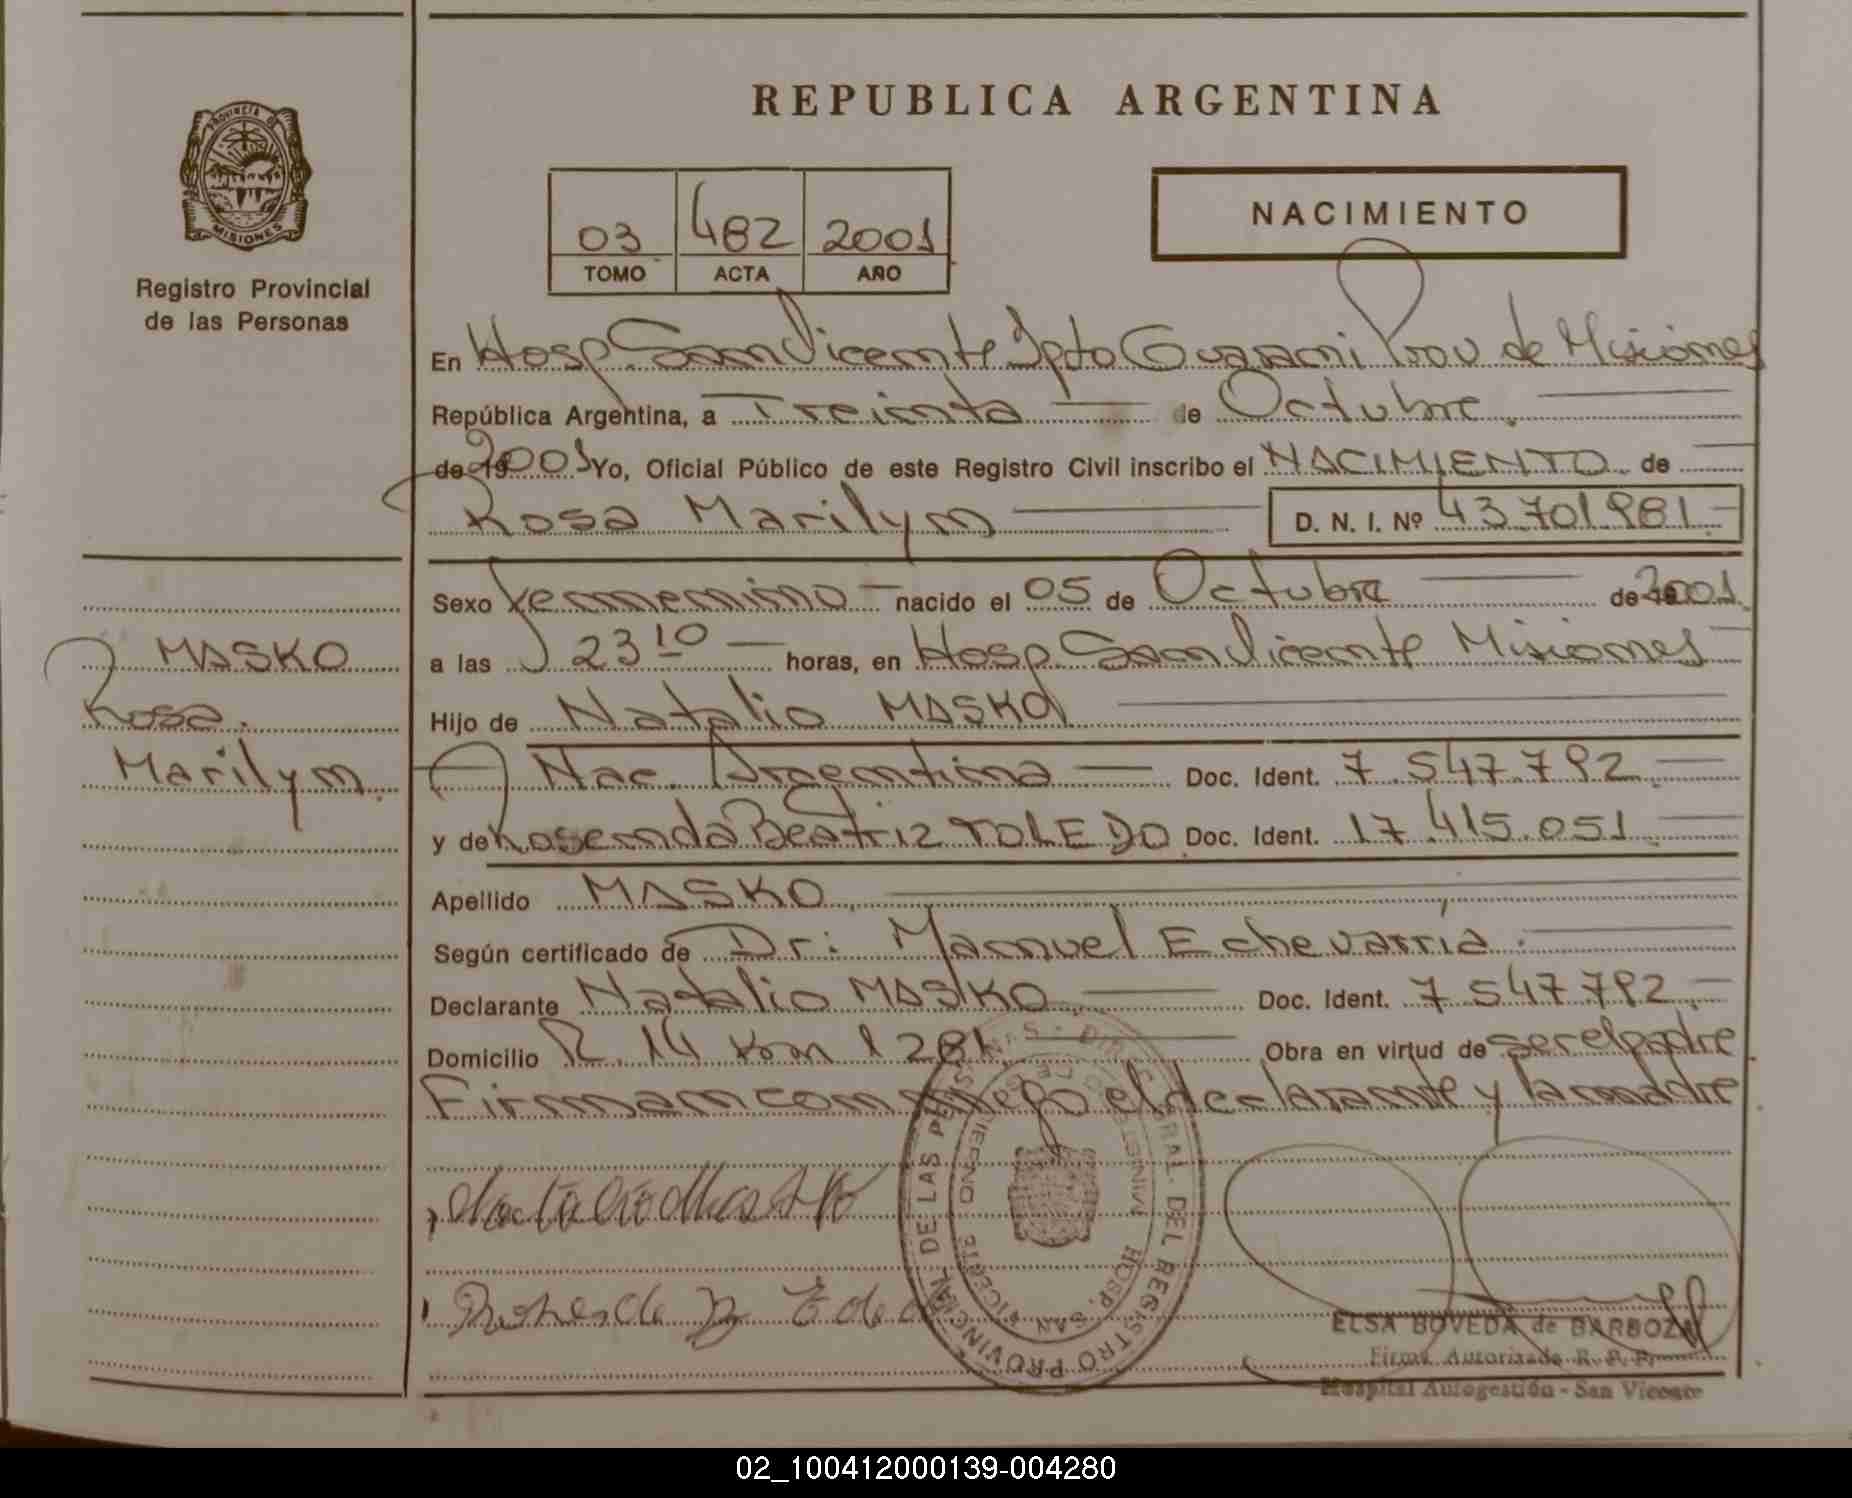 REPUBLICA ARGENTINA
PROVINCIA DE
MISIONES
Registro Provincial
de las Personas
03 482 2001
TOMO ACTA AÑO
NACIMIENTO
En Hosp. San Vicente Dpto Guarani Prov de Misiones
República Argentina, a Treinta de Octubre
de 19 2001 Yo, Oficial Público de este Registro Civil inscribo el NACIMIENTO de
Rosa Marilyn D. N. I. Nº 43.701.981
Sexo femenino nacido el 05 de Octubre de 2001
a las 23 10 horas, en Hosp. San Vicente Misiones
Hijo de Natalio MASKO
Nac. Argentina Doc. Ident. 7.547.792
y de Rosenda Beatriz TOLEDO Doc. Ident. 17.415.051
Apellido MASKO
Según certificado de Dr: Manuel Echevarría
Declarante Natalio MASKO Doc. Ident. 7.547.792
Domicilio R. 14 Km 1281 Obra en virtud de ser el padre
Firman conmigo el declarante y la madre
MASKO
Rosa
Marilyn
Natalio Masko
REGISTRO PROVINCIAL DE LAS PERSONAS - DIR. GRAL. DEL
MINISTERIO DE GOBIERNO
HOSP. SAN VICENTE
ELSA BOVEDA de BARBOZA
Firma Autorizada R. P. P.
Hospital Autogestión - San Vicente
02_100412000139-004280